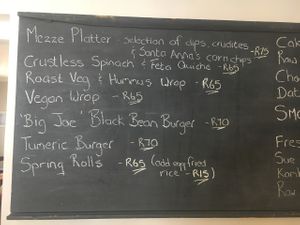 Mezze Platter - selection of dips, crudites
& Santa Anna's corn chips - R75
Crustless Spinach & Feta Quiche - R65
Roast Veg & Hummus Wrap - R65
Vegan Wrap - R65
'Big Joe' Black Bean Burger - R70
Tumeric Burger - R70
Spring Rolls - R65 (add egg fried
rice - R15)
Cak
Raw
Cho
Dat
Smo
Fres
Sue
Kom
Raw